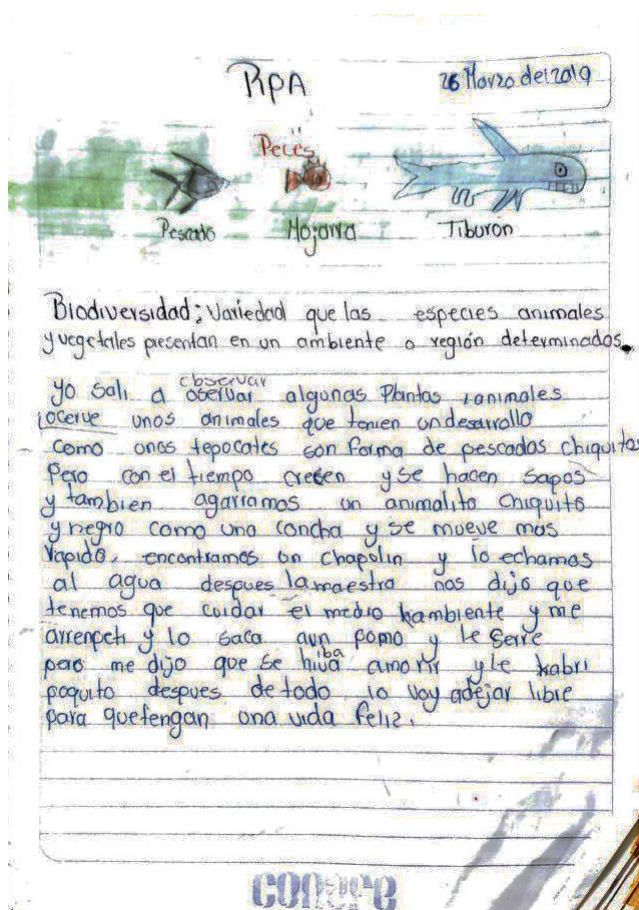 RPA
26 Marzo del 2019
Peces
Pescado Mojarra Tiburón
Biodiversidad: Variedad que las especies animales
y vegetales presentan en un ambiente o región determinados.
observar
yo sali a oservar algunas Plantas ianimales
ocerve unos animales que tenien un desarrollo
como unos tepocates son forma de pescados chiquitos
Pero con el tiempo crecen y se hacen sapos
y tambien agarramos un animalito chiquito
y negro como una concha y se mueve mas
rapido, encontramos un chapolin y lo echamos
al agua despues la maestra nos dijo que
tenemos que cuidar el medio hambiente y me
arrenpeti y lo saca aun pomo y le serre
iba
pero me dijo que se hiva amorir y le habri
poquito despues de todo lo voy adejar libre
para quetengan una vida feliz.